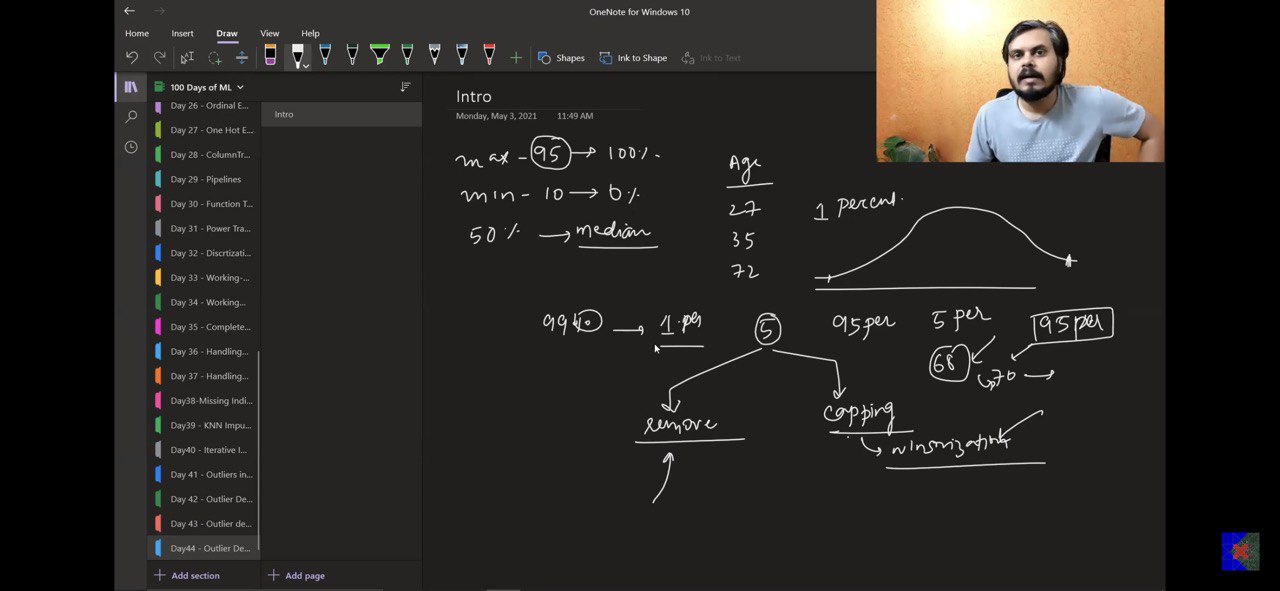 OneNote for Windows 10
Home Insert Draw View Help
Shapes Ink to Shape Ink to Text
100 Days of ML
Day 26 - Ordinal E...
Day 27 - One Hot E...
Day 28 - ColumnTr...
Day 29 - Pipelines
Day 30 - Function T...
Day 31 - Power Tra...
Day 32 - Discrtizati...
Day 33 - Working-...
Day 34 - Working...
Day 35 - Complete...
Day 36 - Handling...
Day 37 - Handling...
Day38-Missing Indi...
Day39 - KNN Impu...
Day40 - Iterative I...
Day 41 - Outliers in...
Day 42 - Outlier De...
Day 43 - Outlier de...
Day44 - Outlier De...
Add section
Intro
Add page
Intro
Monday, May 3, 2021 11:49 AM
max - 95 → 100%
min - 10 → 0%
50% → median
Age
27
35
72
1 percent.
→ 1 per
5
95 per
5 per
95 per
68
70 →
remove
capping